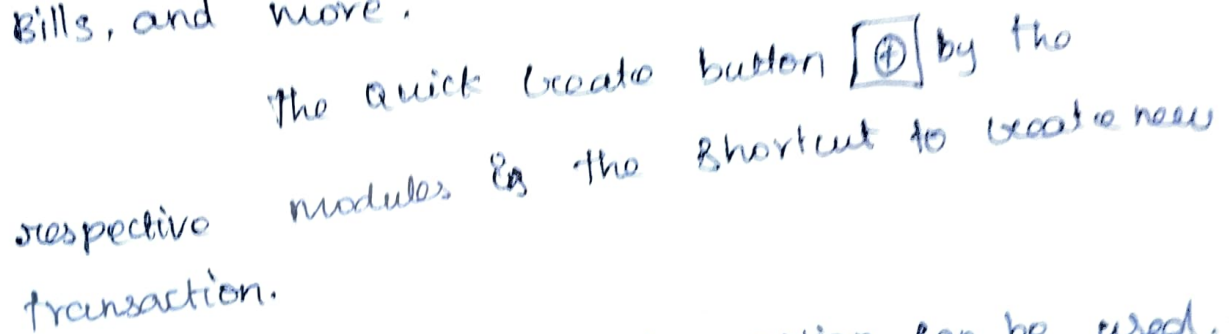 Bills, and more.
The Quick Create button [⊕] by the
respective modules is the Shortcut to create new
transaction.
can be used